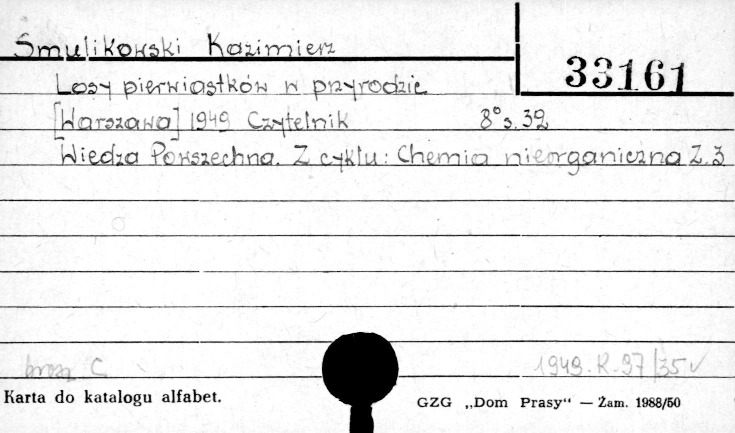 Smulikowski Kazimierz
33161
Losy pierwiastków w przyrodzie
[Warszawa] 1949 Czytelnik 8° s. 32
Wiedza Powszechna. Z cyklu: Chemia nieorganiczna Z. 3
brosz C
1949. K. 97/35 ✓
Karta do katalogu alfabet.
GZG „Dom Prasy“ — Żam. 1988/50